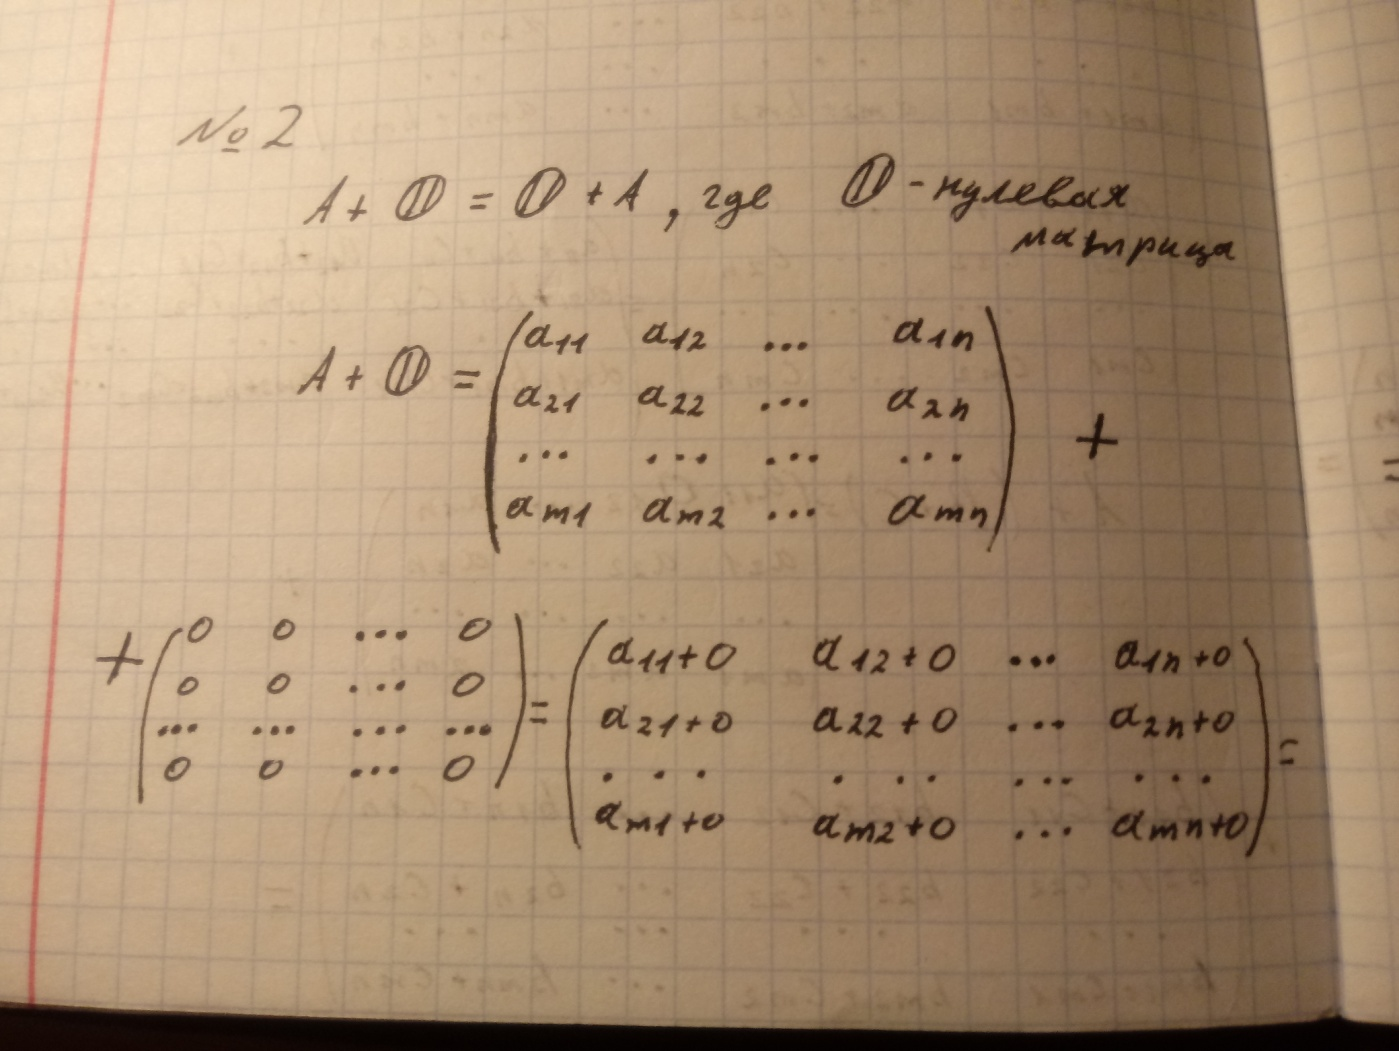 № 2
A + 𝕆 = 𝕆 + A , где 𝕆 - нулевая
матрица
A + 𝕆 = ( a11 a12 ... a1n
a21 a22 ... a2n
... ... ... ...
am1 am2 ... amn ) +
+ ( 0 0 ... 0 ) = ( a11+0 a12+0 ... a1n+0
0 0 ... 0 a21+0 a22+0 ... a2n+0
... ... ... ... ... ... ... ...
0 0 ... 0 am1+0 am2+0 ... amn+0 ) =